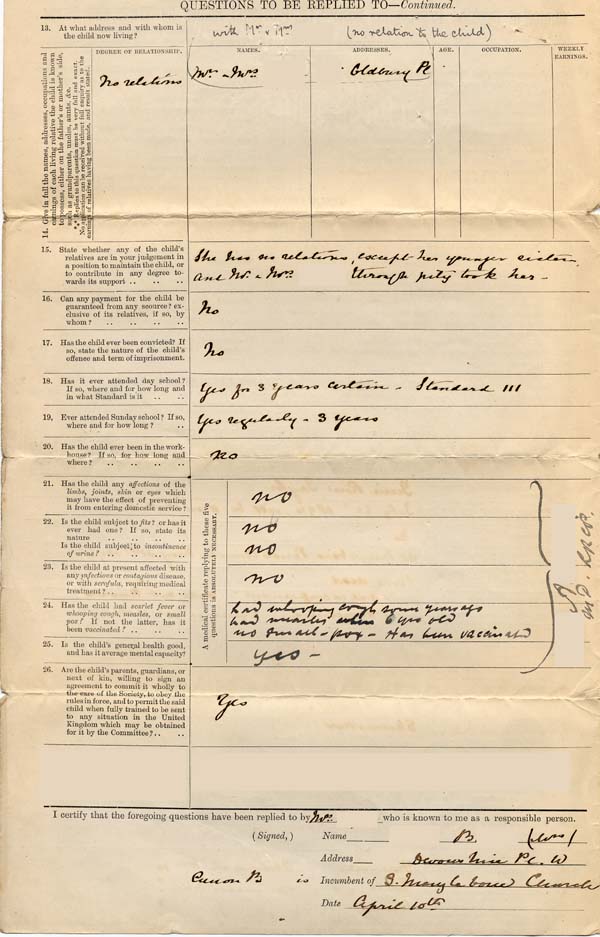 QUESTIONS TO BE REPLIED TO—Continued.
13. At what address and with whom is the child now living?
with Mr & Mrs (no relation to the child)
14. Give in full the names, addresses, occupations and earnings of each living relative the child is known to possess, either on the father's or mother's side, such as grandparents, uncles, aunts, &c.
*** Replies to this question must be very full and exact. No application can be received without full enquiry as to the earnings of relatives having been made, and result stated.
DEGREE OF RELATIONSHIP. NAMES. ADDRESSES. AGE. OCCUPATION. WEEKLY EARNINGS.
No relations Mr & Mrs Oldbury Pl
15. State whether any of the child's
relatives are in your judgement in
a position to maintain the child, or
to contribute in any degree to-
wards its support .. .. ..
She has no relations, except her younger sister
and Mr. & Mrs. through pity took her -
16. Can any payment for the child be
guaranteed from any scource? ex-
clusive of its relatives, if so, by
whom? .. .. .. ..
No
17. Has the child ever been convicted? If
so, state the nature of the child's
offence and term of imprisonment.
No
18. Has it ever attended day school?
If so, where and for how long and
in what Standard is it .. ..
Yes for 3 years certain - Standard III
19. Ever attended Sunday school? If so,
where and for how long? ..
Yes regularly - 3 years
20. Has the child ever been in the work-
house? If so, for how long and
where? .. .. .. ..
No
A medical certificate replying to these five questions is ABSOLUTELY NECESSARY.
21. Has the child any affections of the
limbs, joints, skin or eyes which
may have the effect of preventing
it from entering domestic service?
no
22. Is the child subject to fits? or has it
ever had one? If so, state its
nature .. .. .. ..
no
Is the child subject to incontinence
of urine? .. .. .. ..
no
23. Is the child at present affected with
any infectious or contagious disease,
or with scrofula, requiring medical
treatment? .. .. .. ..
no
24. Has the child had scarlet fever or
whooping cough, measles, or small
pox? If not the latter, has it
been vaccinated? .. .. ..
had whooping cough some years ago
had measles when 6 yrs old
no small-pox - Has been vaccinated
25. Is the child's general health good,
and has it average mental capacity?
yes -
26. Are the child's parents, guardians, or
next of kin, willing to sign an
agreement to commit it wholly to
the care of the Society, to obey the
rules in force, and to permit the said
child when fully trained to be sent
to any situation in the United
Kingdom which may be obtained
for it by the Committee? .. ..
Yes
I certify that the foregoing questions have been replied to by Mrs. who is known to me as a responsible person.
(Signed,) Name B. (Mrs)
Address Devonshire Pl. W
Canon B is Incumbent of S. Marylebone Church
Date April 10th